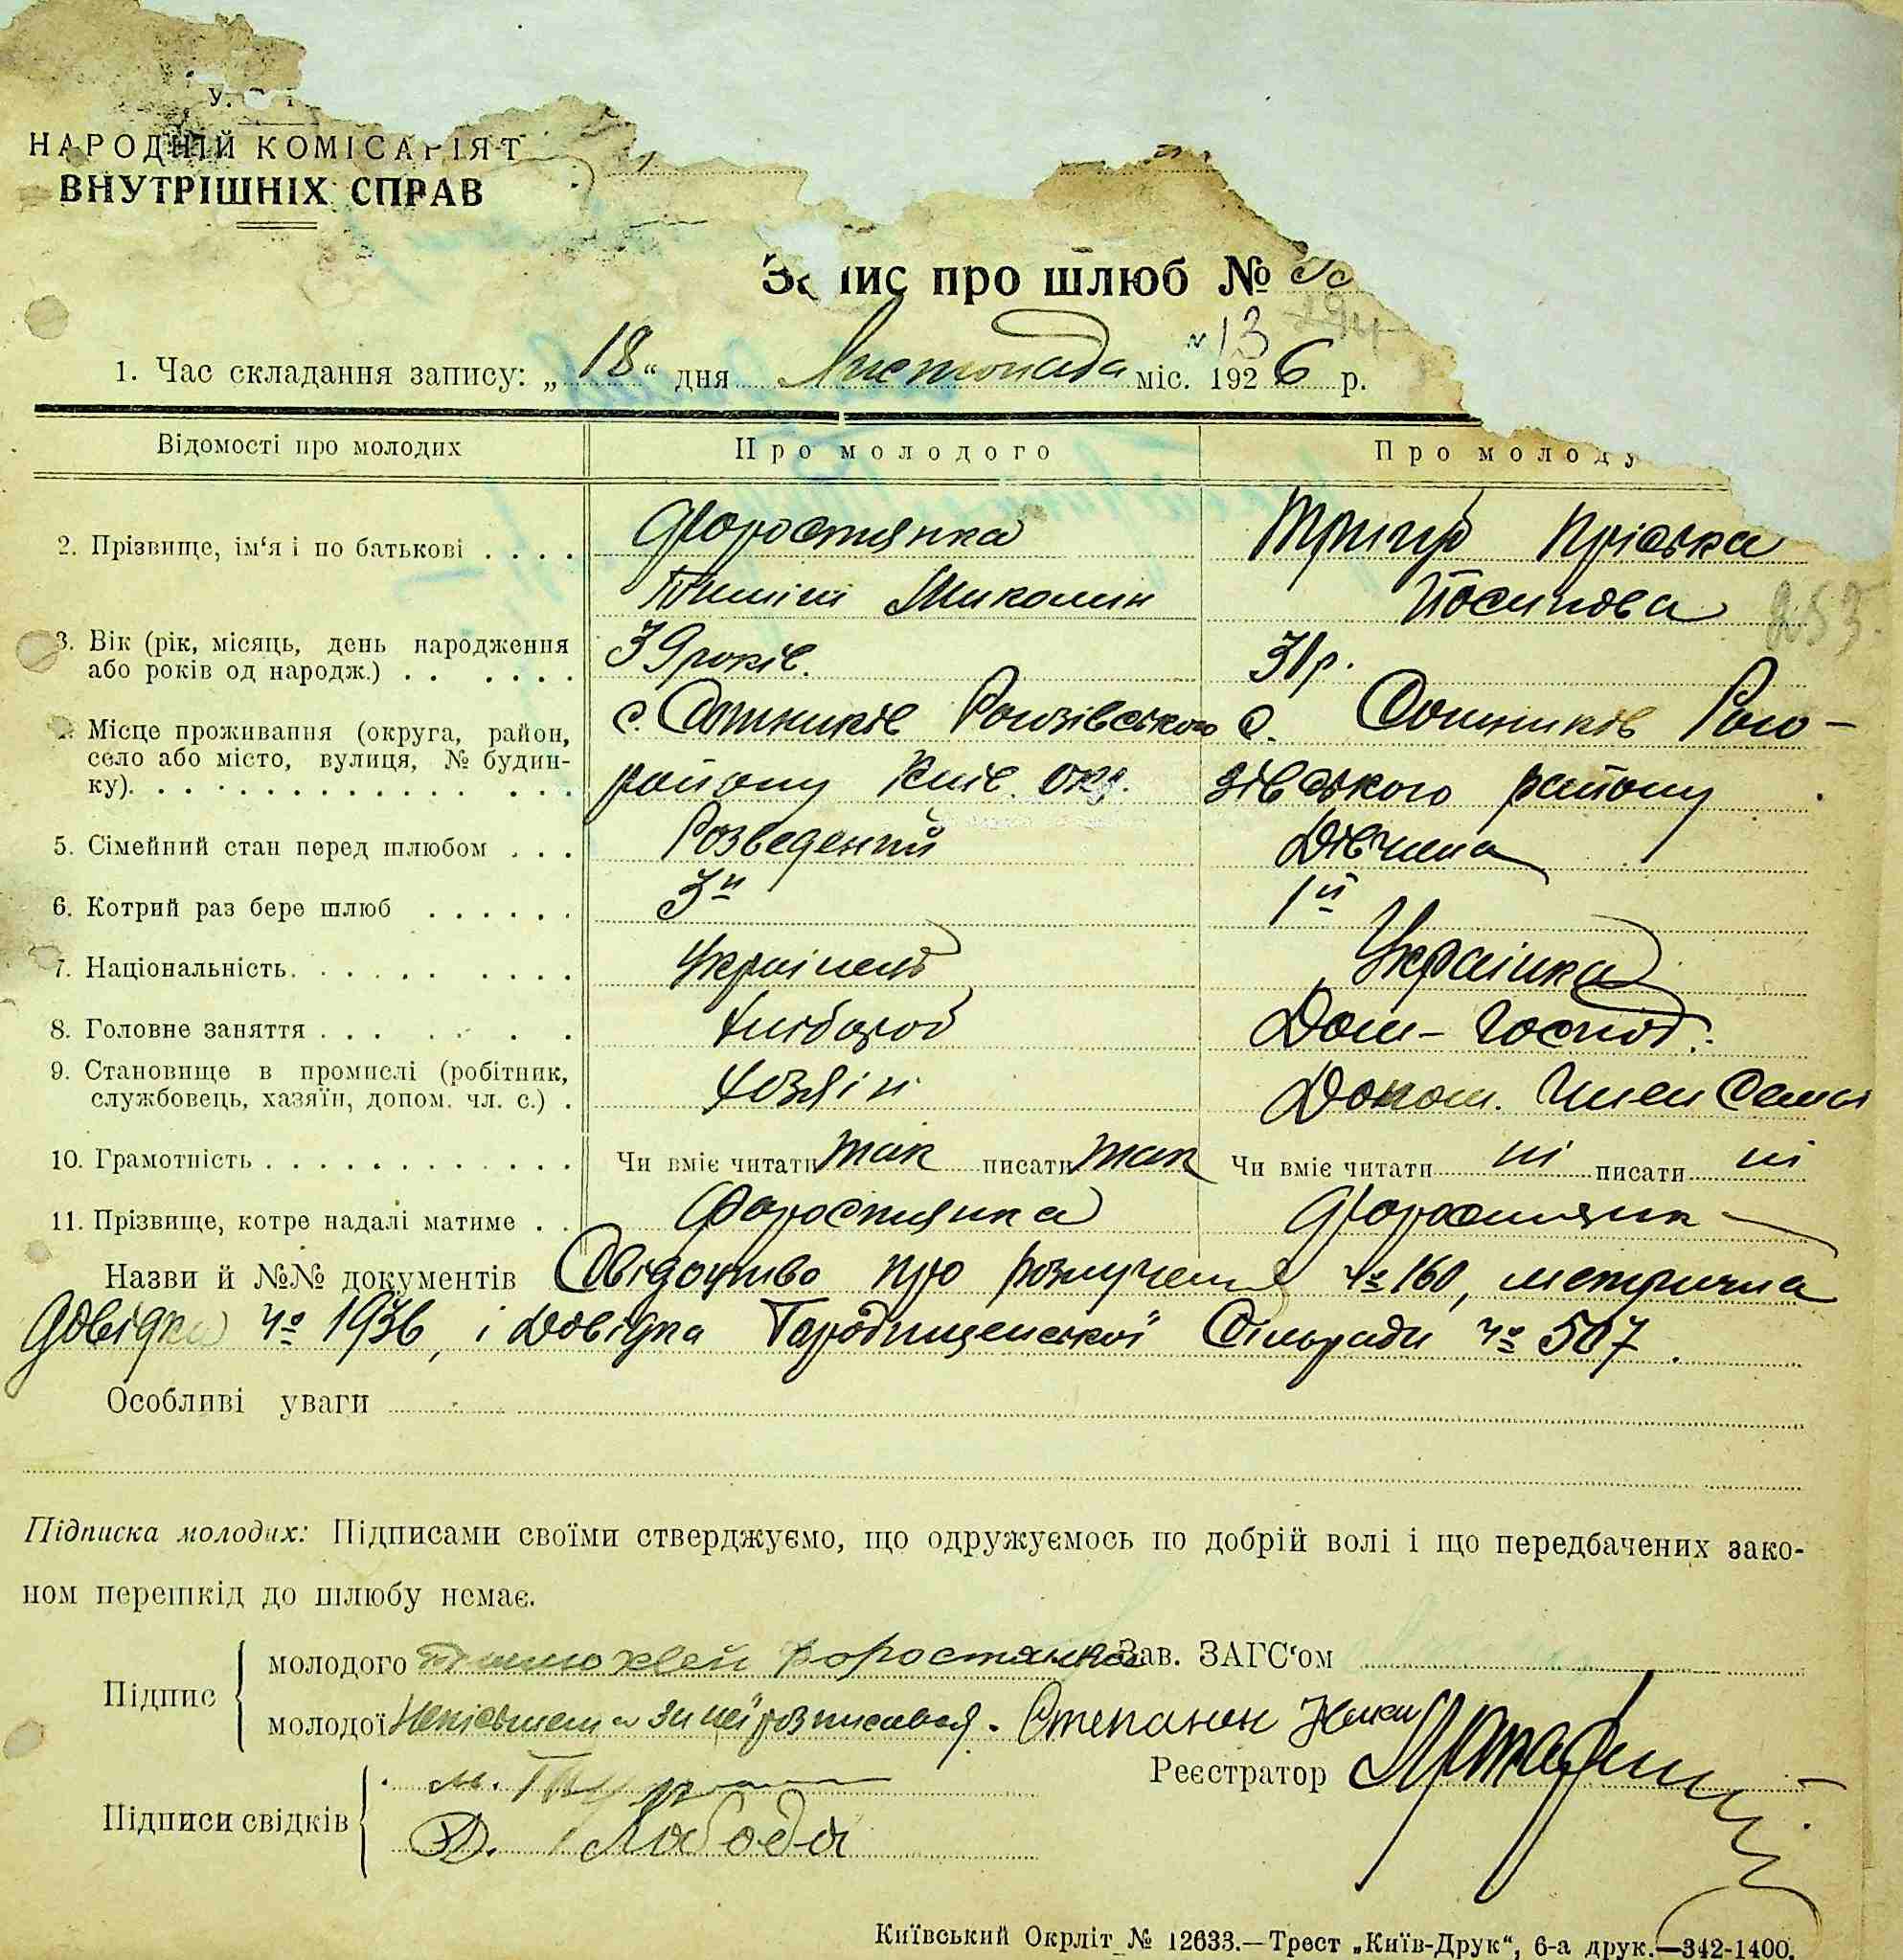 У.
НАРОДНІЙ КОМІСАРІЯТ
ВНУТРІШНІХ СПРАВ
Запис про шлюб №
N 13
1. Час складання запису: „18“ дня Листопада міс. 1926 р.
Відомості про молодих Про молодого Про молоду
2. Прізвище, ім‘я і по батькові . . . . Форостянка Тригуб Пріська
Тиміш Миколин Йосипова
253
3. Вік (рік, місяць, день народження
або років од народж.) . . . . . . 39 років. 31 р.
Місце проживання (округа, район, с. Сошників Рогозівського с. Сошників Рого-
село або місто, вулиця, № будин-
ку). . . . . . . . . . . . . . . району Київ. окр. зівського району
5. Сімейний стан перед шлюбом . . . Розведений Дівчина
6. Котрий раз бере шлюб . . . . . . 3й 1й
7. Національність. . . . . . . . . . Українець Українка
8. Головне заняття . . . . . . . Хлібороб Дом-Господ.
9. Становище в промислі (робітник,
службовець, хазяїн, допом. чл. с.) . Хозяїн Допом. Член Семьї
10. Грамотність . . . . . . . . . . . . Чи вміє читати так писати так Чи вміє читати ні писати ні
11. Прізвище, котре надалі матиме . . Форостянка Форостянк
Назви й №№ документів Свідоцтво про розлучення № 160, метрична
довідка № 1936, і довідка Городищенської Сільради № 507.
Особливі уваги
Підписка молодих: Підписами своїми стверджуємо, що одружуємось по добрій волі і що передбачених зако-
ном перешкід до шлюбу немає.
Підпис
молодого Тимохвей Форостянка Зав. ЗАГС‘ом
молодої Неписьмена за неї розписався. Степанюк
Реєстратор
Підписи свідків
М.
Д. Лобода
Київський Окрліт № 12633.—Трест „Київ-Друк“, 6-а друк.—342-1400.